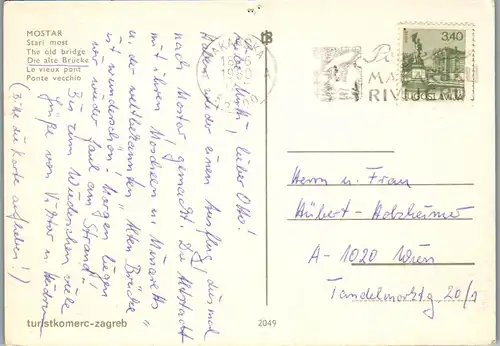 MOSTAR
Stari most
The old bridge
Die alte Brücke
Le vieux pont
Ponte vecchio
lieber Otto!
Haben wieder einen Ausflug, diesmal
nach Mostar, gemacht. Die Altstadt
mit ihren Moscheen u. Minaretts
u. der weltbekannten "Alten Brücke"
ist wunderschön! Morgen liegen
wir wieder faul am Strand.
Bis zum Wiedersehen viele
von Viktor u.
(Bitte die Karte aufheben!)
turistkomerc-zagreb
2049
MAKARSKA
RIVIJERI
3,40
JUGOSLAVIJA
Herrn u. Frau
Hubert-Holzheimer
A-1020 Wien
Tandelmarktg. 20/1